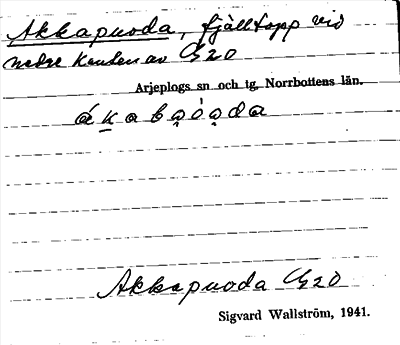 Akkapuoda, fjälltopp vid
nedre kanten av G20
Arjeplogs sn och tg, Norrbottens län.
ák̠abạọ́ạda
Akkapuoda G20
Sigvard Wallström, 1941.